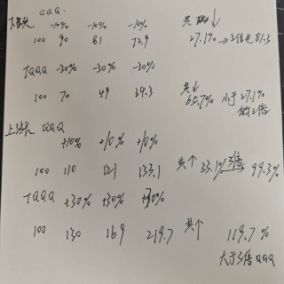 下跌 QQQ
-10% -10% -10%
100 90 81 72.9 共 ↓ 27.1% → 3倍 81.3
TQQQ -30% -30% -30%
100 70 49 34.3 共↓ 65.7% 小于27.1%的三倍
上涨 QQQ
+10% +10% +10%
100 110 121 133.1 共个 33.1% 三倍 99.3%
TQQQ +30% +30% +30%
100 130 169 219.7 共个 119.7%
大于3倍QQQ